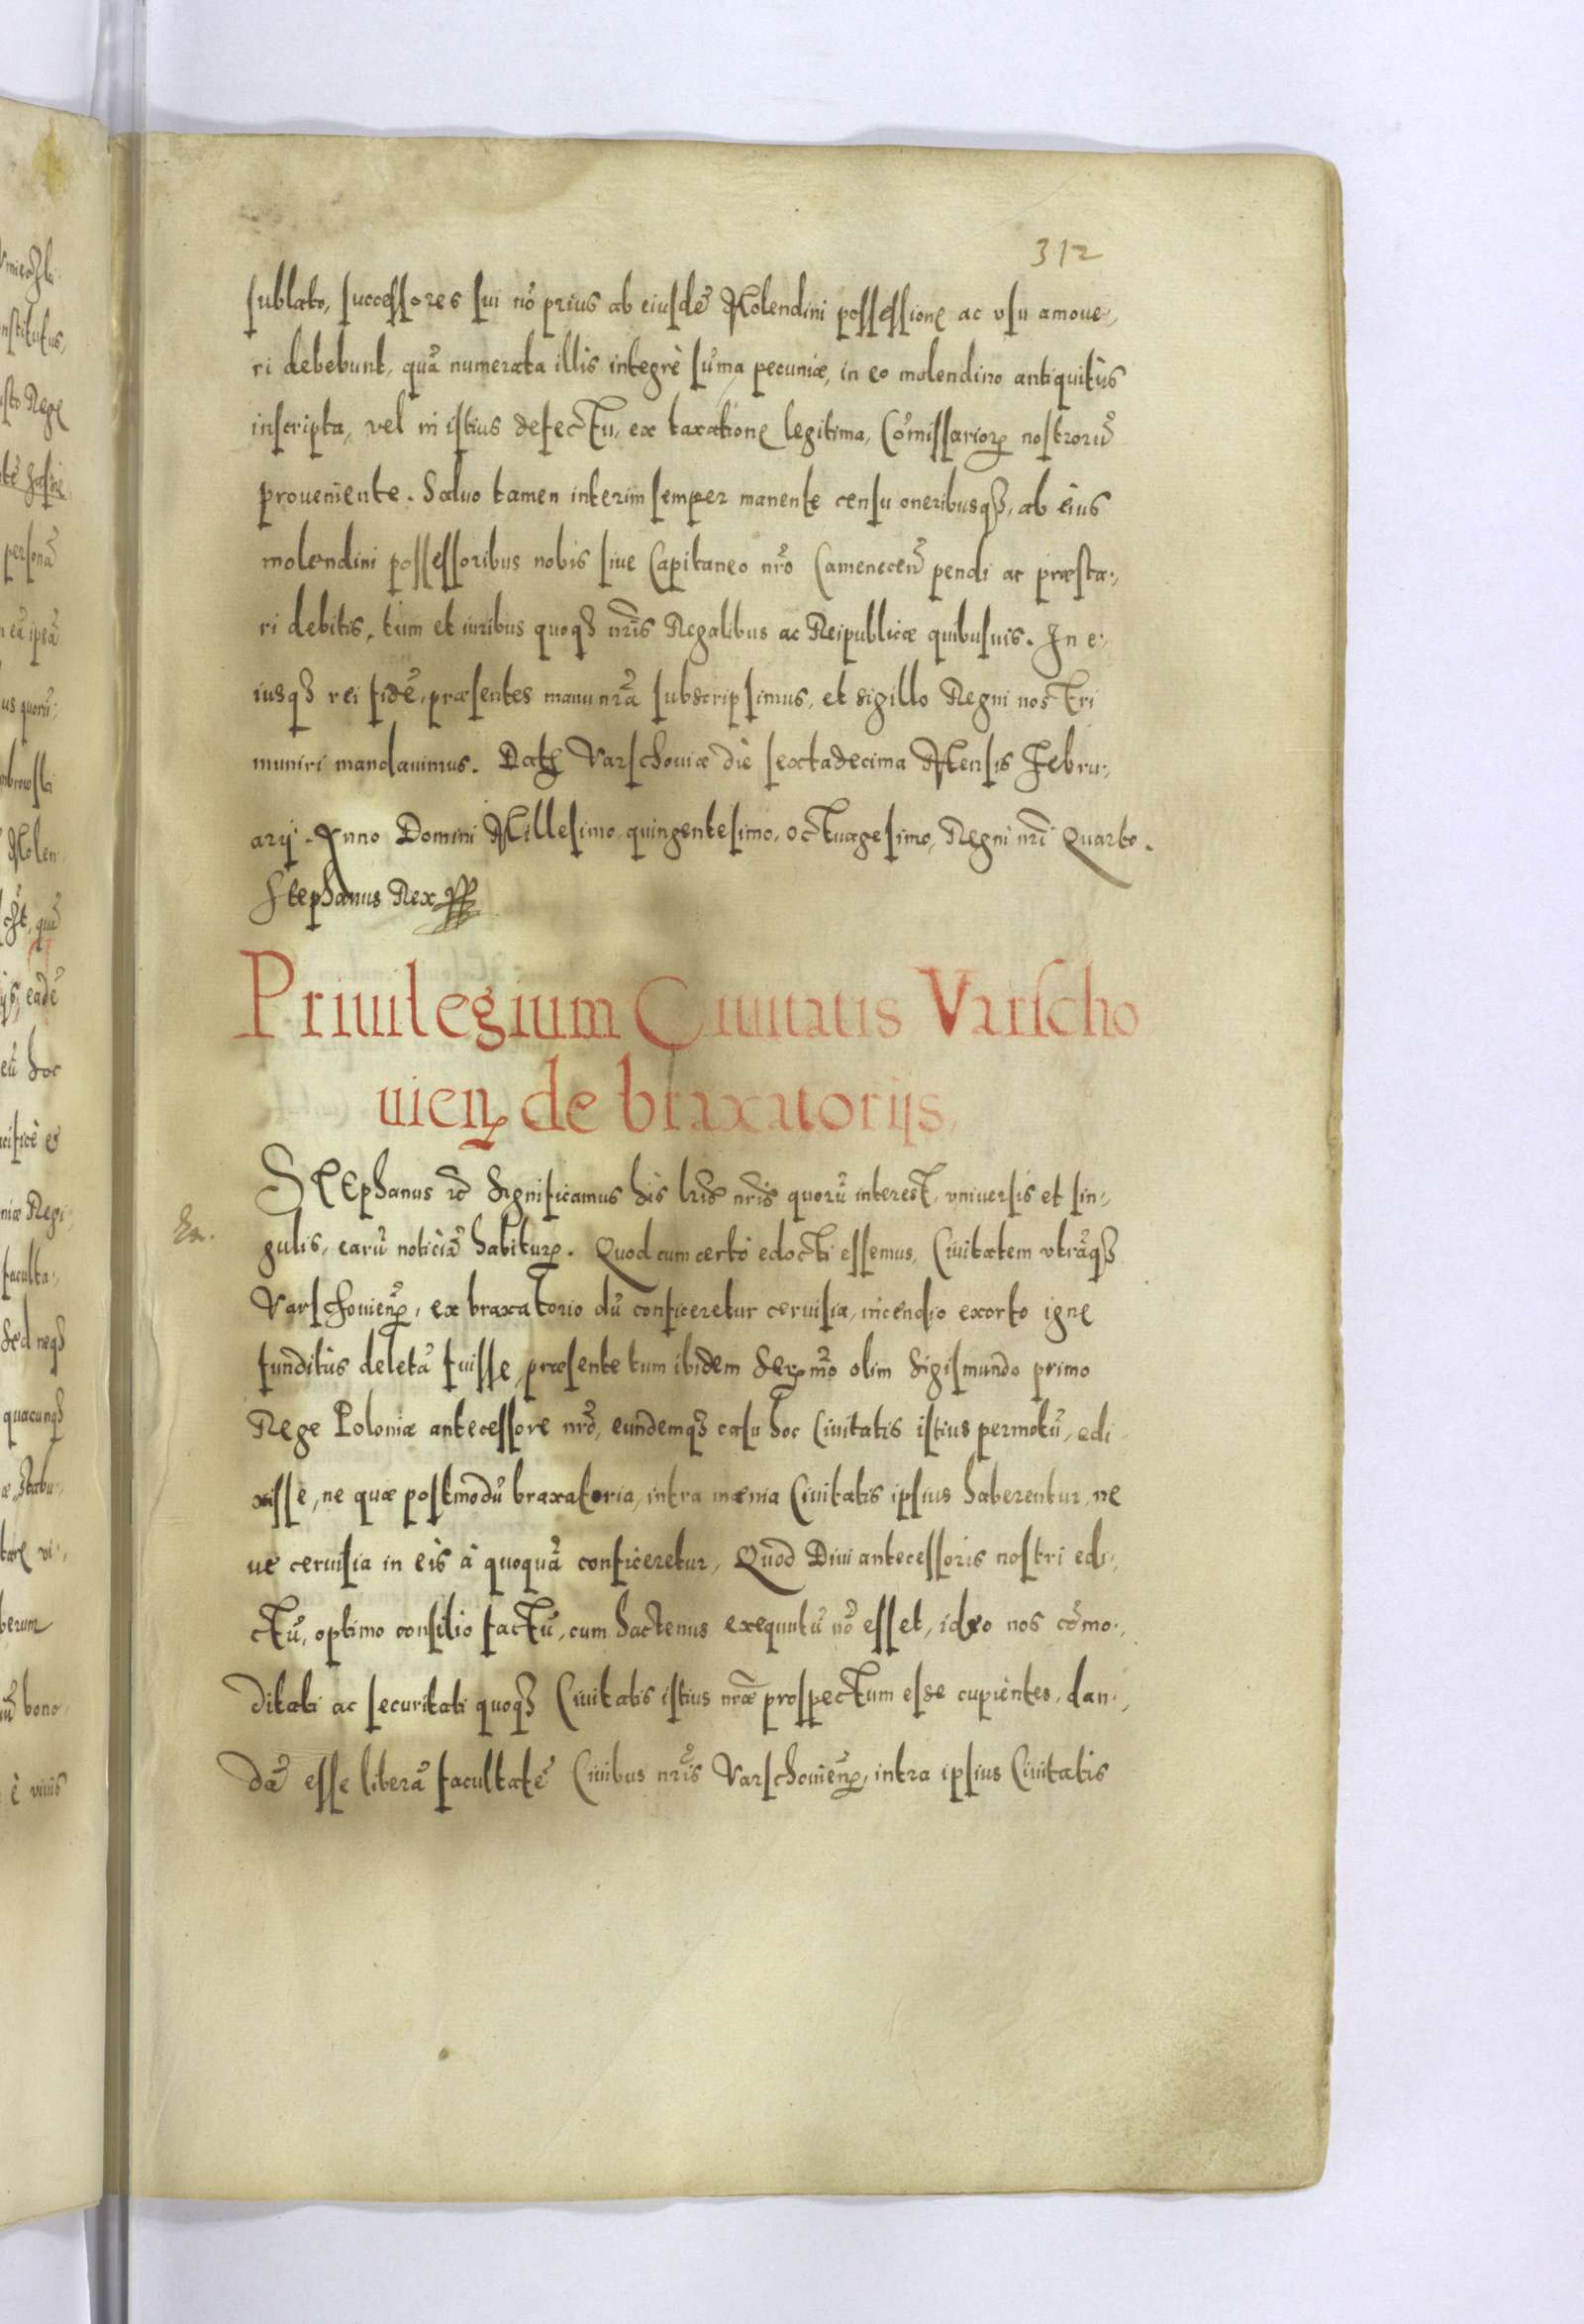 312
sublato, successores sui nõ prius ab eiusdẽ Molendini possessione ac vsu amoue:,
ri debebunt, quã numerata illis integrè sũma pecuniæ, in eo molendino antiquitùs
inscripta, vel in istius defectu, ex taxatione legitima, Cõmissarioꝝ nostrorũ
proueniente. Saluo tamen interim semper manente censu oneribusqꝫ, ab eius
molendini possessoribus nobis siue Capitaneo nr̃o Camenecen̄ pendi ac præsta:,
ri debitis, tum et iuribus quoqꝫ nr̃is Regalibus ac Reipublicæ quibusuis. In e:,
iusqꝫ rei fidẽ, præsentes manu nr̃a subscripsimus, et sigillo Regni nostri
muniri mandauimus. Datꝫ Varschouiæ die sextadecima Mensis Febru:,
arij. Anno Domini Millesimo, quingentesimo, octuagesimo, Regni nr̃i Quarto.
Stephanus Rex
Priuilegium Ciuitatis Varscho
uien̄ de braxatorijs.
Stephanus ꝛc̃ Significamus his lr̃is nr̃is quorũ interest, vniuersis et sin:,
gulis, earũ noticiã habituꝝ. Quod cum certò edocti essemus, Ciuitatem vtrãqꝫ
Varschouien̄, ex braxatorio dũ conficeretur ceruisia, incendio exorto igne
funditùs deletã fuisse, præsente tum ibidem Sermõ olim Sigismundo primo
Rege Poloniæ antecessore nr̃o, eundemqꝫ casu hoc Ciuitatis istius permotũ, edi
xisse, ne quæ postmodũ braxatoria, intra mænia Ciuitatis ipsius haberentur, ne
ue ceruisia in eis à quoquã conficeretur, Quod Diui antecessoris nostri edi:,
ctũ, optimo consilio factũ, cum hactenus exequutũ nõ esset, ideo nos cõmo:,
ditati ac securitati quoqꝫ Ciuitatis istius nr̃æ prospectum esse cupientes, dan:,
dã esse liberã facultatẽ Ciuibus nr̃is Varschouien̄, intra ipsius Ciuitatis